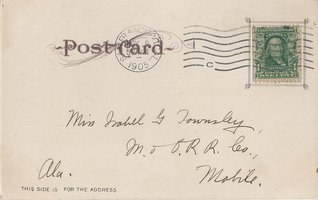 Post Card
1905
C
Miss Isabel G Townsley,
M. & O. R. R. Co.,
Mobile.
Ala.
THIS SIDE IS FOR THE ADDRESS